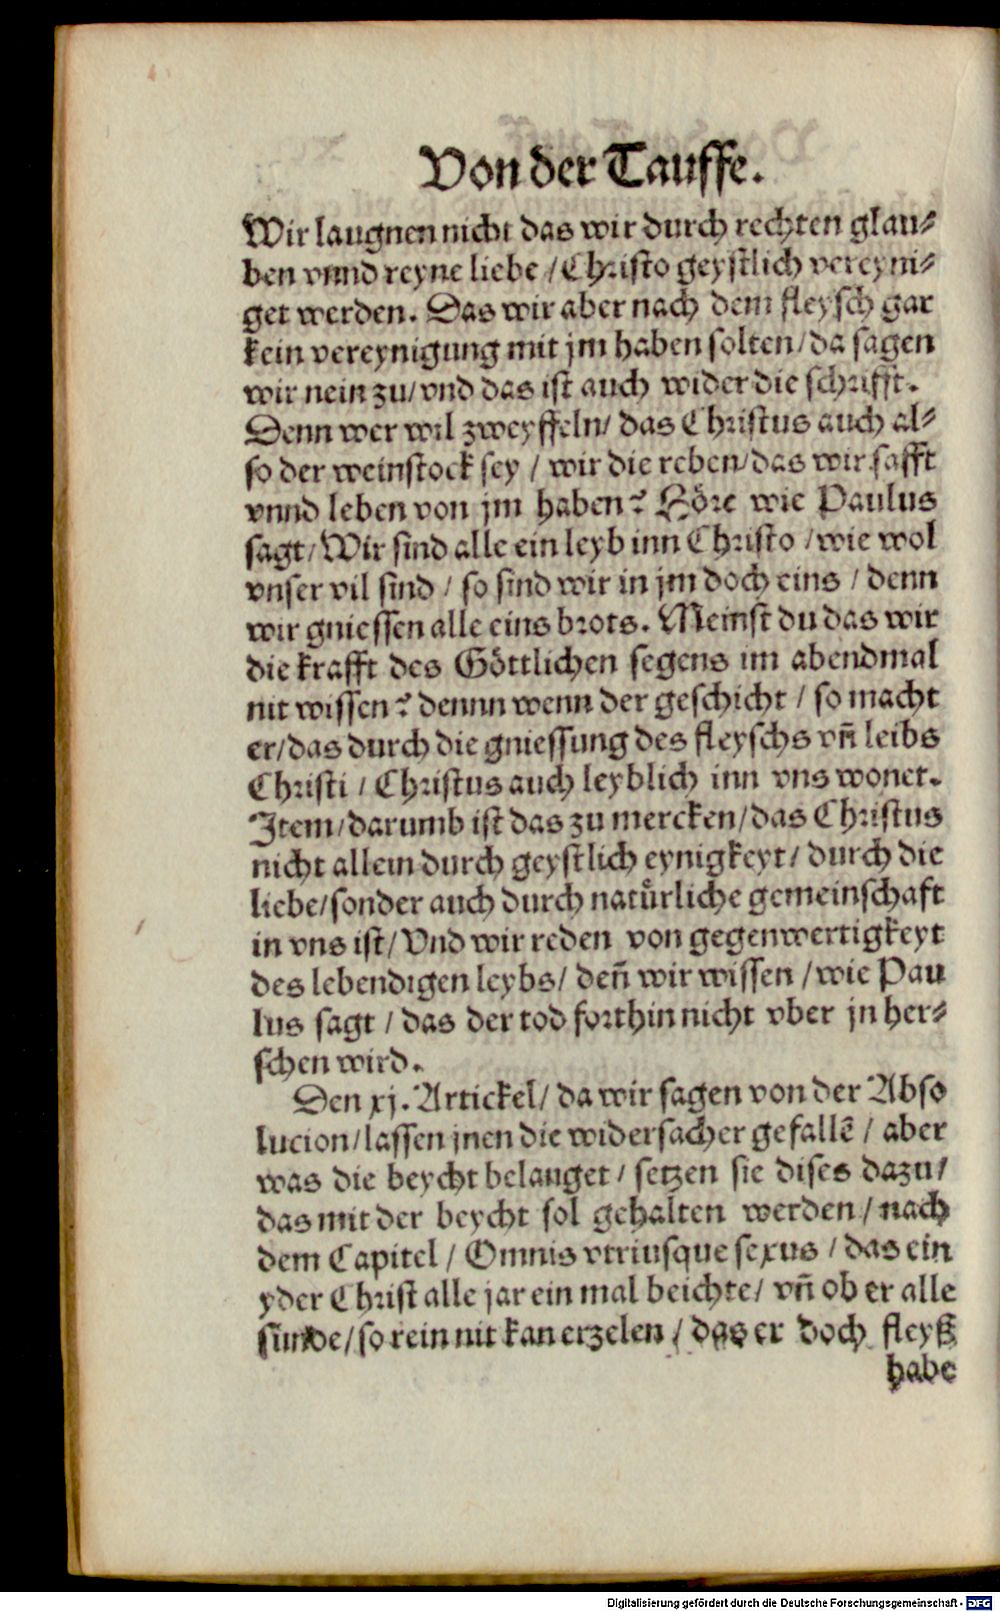 Von der Tauffe.
Wir laugnen nicht das wir durch rechten glau⸗
ben vnnd reyne liebe / Christo geystlich vereyni⸗
get werden. Das wir aber nach dem fleysch gar
kein vereynigung mit jm haben solten / da sagen
wir nein zu / vnd das ist auch wider die schrifft.
Denn wer wil zweyffeln / das Christus auch al⸗
so der weinstock sey / wir die reben / das wir safft
vnnd leben von jm haben? Höre wie Paulus
sagt / Wir sind alle ein leyb inn Christo / wie wol
vnser vil sind / so sind wir in jm doch eins / denn
wir gniessen alle eins brots. Meinst du das wir
die krafft des Göttlichen segens im abendmal
nit wissen? dennn wenn der geschicht / so macht
er / das durch die gniessung des fleyschs vñ leibs
Christi / Christus auch leyblich inn vns wonet.
Item / darumb ist das zu mercken / das Christus
nicht allein durch geystlich eynigkeyt / durch die
liebe / sonder auch durch natůrliche gemeinschaft
in vns ist / Vnd wir reden von gegenwertigkeyt
des lebendigen leybs / deñ wir wissen / wie Pau
lus sagt / das der tod forthin nicht vber jn her⸗
schen wird.
Den xj. Artickel / da wir sagen von der Abso
lucion / lassen jnen die widersacher gefallē / aber
was die beycht belanget / setzen sie dises dazu /
das mit der beycht sol gehalten werden / nach
dem Capitel / Omnis vtriusque sexus / das ein
yder Christ alle jar ein mal beichte / vñ ob er alle
sünde / so rein nit kan erzelen / das er doch fleyß
habe
Digitalisierung gefördert durch die Deutsche Forschungsgemeinschaft - DFG